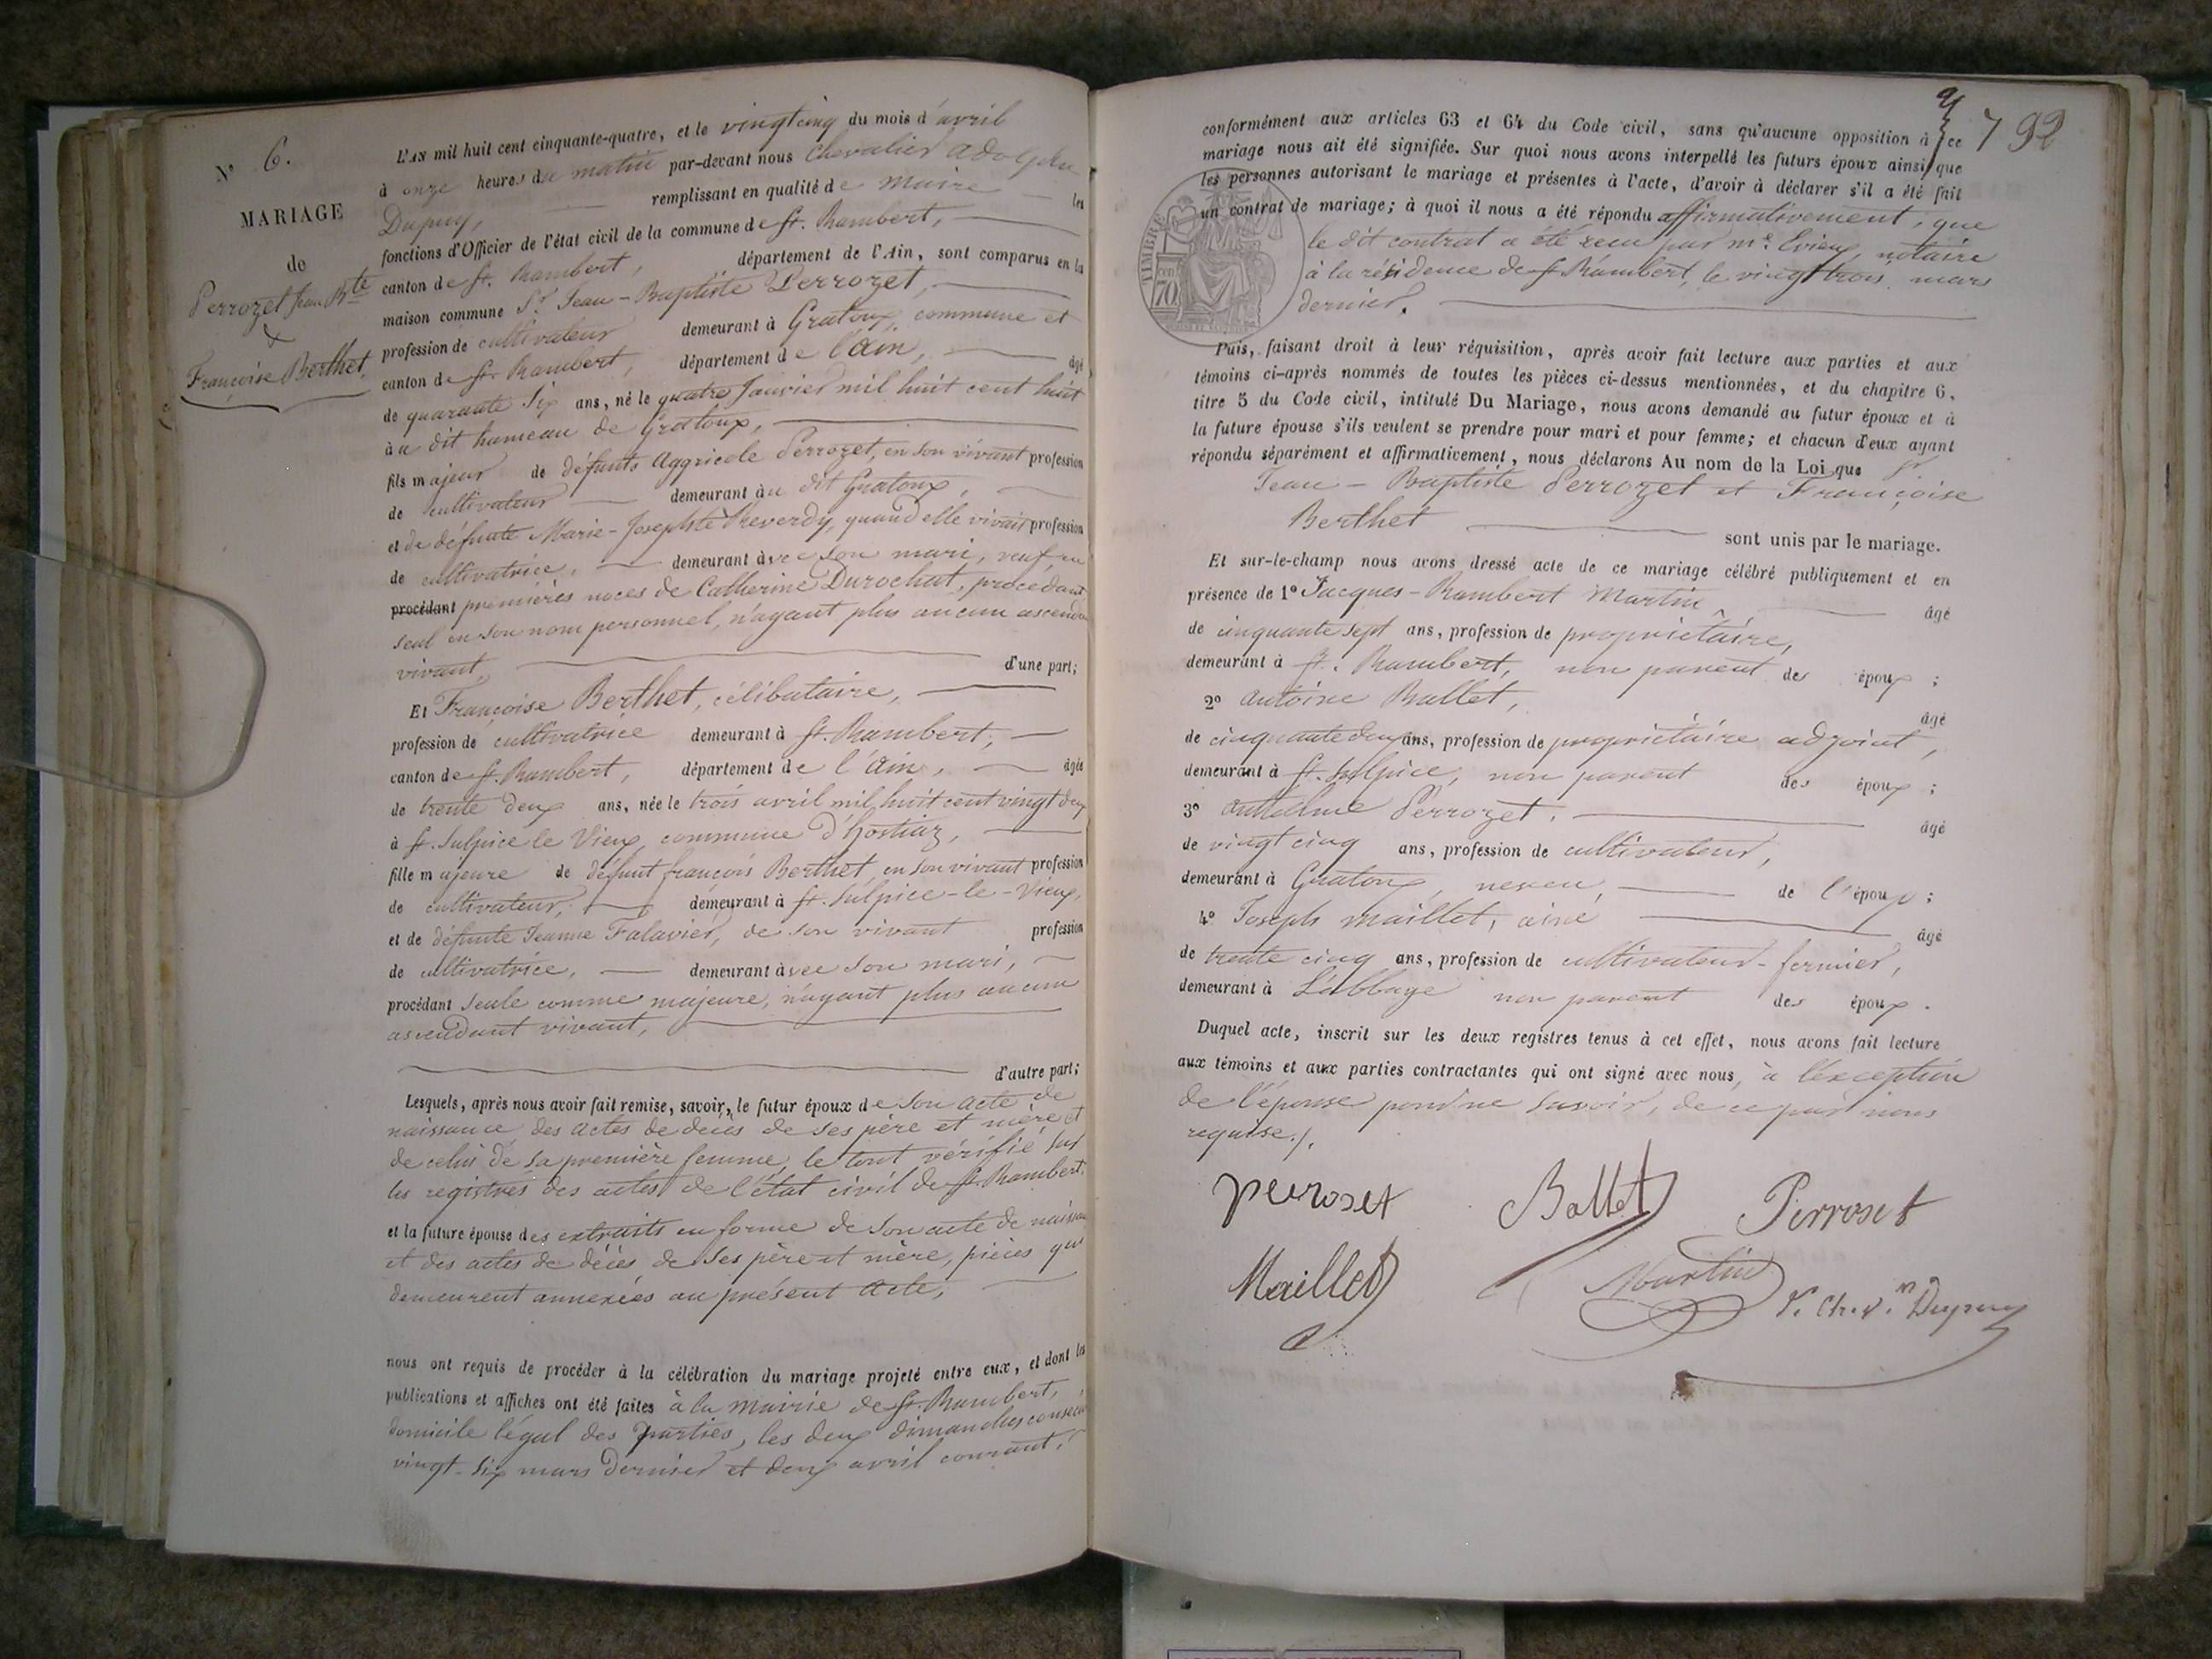 N° 6.
MARIAGE
de
Perrozet Jean Bte
&
Françoise Berthet.
L'AN mil huit cent cinquante-quatre, et le vingt cinq du mois d'avril
à onze heures du matin par-devant nous Chevalier Adolphe
Dupuy, remplissant en qualité de maire les
fonctions d'Officier de l'état civil de la commune de St. Rambert,
canton de St. Rambert, département de l'Ain, sont comparus en la
maison commune Sr. Jean-Baptiste Perrozet,
profession de cultivateur demeurant à Gratoux, commune et
canton de St. Rambert, département de l'Ain, âgé
de quarante six ans, né le quatre Janvier mil huit cent huit
au dit hameau de Gratoux,
fils majeur de défunts Aggricole Perrozet, en son vivant profession
de cultivateur demeurant au dit Gratoux,
et de défunte Marie-Josephte Reverdy, quand elle vivait profession
de cultivatrice, demeurant avec son mari, veuf en
procédant premières noces de Catherine Durochat, procédant
seul en son nom personnel, n'ayant plus aucun ascendant
vivant, d'une part;
Et Françoise Berthet, célibataire,
profession de cultivatrice demeurant à St. Rambert,
canton de St. Rambert, département de l'Ain, âgée
de trente deux ans, née le trois avril mil huit cent vingt deux
à St. Sulpice le Vieux, commune d'hostiaz,
fille majeure de défunt françois Berthet, en son vivant profession
de cultivateur, demeurant à St. Sulpice-le-Vieux,
et de défunte Jeanne Falavier, de son vivant profession
de cultivatrice, demeurant avec son mari,
procédant seule comme majeure, n'ayant plus aucun
ascendant vivant,
d'autre part;
Lesquels, après nous avoir fait remise, savoir, le futur époux de son acte de
naissance des actes de décès de ses père et mère et
de celui de sa première femme, le tout vérifié sur
les registres des actes de l'état civil de St. Rambert.
et la future épouse des extraits en forme de son acte de naissance
et des actes de décès de ses père et mère, pièces qui
demeurent annexées au présent acte,
nous ont requis de procéder à la célébration du mariage projeté entre eux, et dont les
publications et affiches ont été faites à la mairie de St. Rambert,
domicile légal des parties, les deux dimanches consécutifs
vingt-six mars dernier et deux avril courant,
7 92
conformément aux articles 63 et 64 du Code civil, sans qu'aucune opposition à ce
mariage nous ait été signifiée. Sur quoi nous avons interpellé les futurs époux ainsi que
les personnes autorisant le mariage et présentes à l'acte, d'avoir à déclarer s'il a été fait
un contrat de mariage; à quoi il nous a été répondu affirmativement, que
le dit contrat a été reçu par me. Evieux, notaire
à la résidence de St. Rambert, le vingt trois mars
dernier.
TIMBRE
70
Puis, faisant droit à leur réquisition, après avoir fait lecture aux parties et aux
témoins ci-après nommés de toutes les pièces ci-dessus mentionnées, et du chapitre 6,
titre 5 du Code civil, intitulé Du Mariage, nous avons demandé au futur époux et à
la future épouse s'ils veulent se prendre pour mari et pour femme; et chacun d'eux ayant
répondu séparément et affirmativement, nous déclarons Au nom de la Loi que Sr.
Jean-Baptiste Perrozet et Françoise
Berthet
sont unis par le mariage.
Et sur-le-champ nous avons dressé acte de ce mariage célébré publiquement et en
présence de 1° Jacques-Rambert Martin, âgé
de cinquante sept ans, profession de propriétaire,
demeurant à St. Rambert, non parent des époux;
2° Antoine Ballet, âgé
de cinquante deux ans, profession de propriétaire adjoint,
demeurant à St. Sulpice, non parent des époux;
3° Anthelme Perrozet, âgé
de vingt cinq ans, profession de cultivateur,
demeurant à Gratoux, neveu, de l'époux;
4° Joseph Maillet, ainé âgé
de trente cinq ans, profession de cultivateur-fermier,
demeurant à L'abbaye non parent des époux.
Duquel acte, inscrit sur les deux registres tenus à cet effet, nous avons fait lecture
aux témoins et aux parties contractantes qui ont signé avec nous, à l'exception
de l'épouse pour ne savoir, de ce par nous
requise./.
perroset Ballet Perroset
Maillet Martin
Dupuy